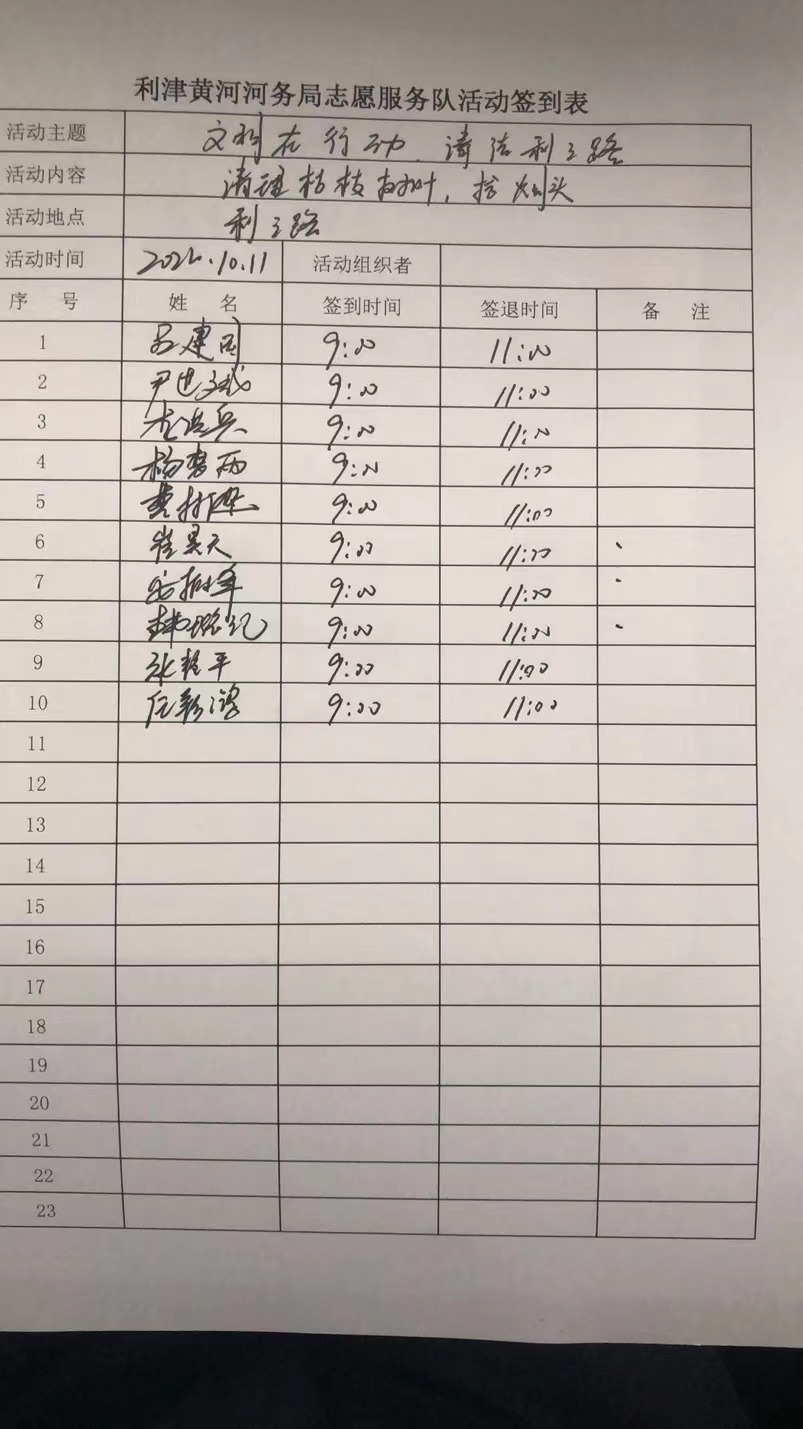 利津黄河河务局志愿服务队活动签到表
活动主题 文明在行动、清洁利三路
活动内容 清理枯枝树叶，捡烟头
活动地点 利三路
活动时间 10.11 活动组织者
序 号 姓 名 签到时间 签退时间 备 注
1 吕建国 9:00 11:00
2 尹世斌 9:00 11:00
3 9:00 11:00
4 杨雪雨 9:00 11:00
5 9:00 11:00
6 崔昊天 9:00 11:00
7 9:00 11:00
8 9:00 11:00
9 平 9:00 11:00
10 任 9:00 11:00
11
12
13
14
15
16
17
18
19
20
21
22
23